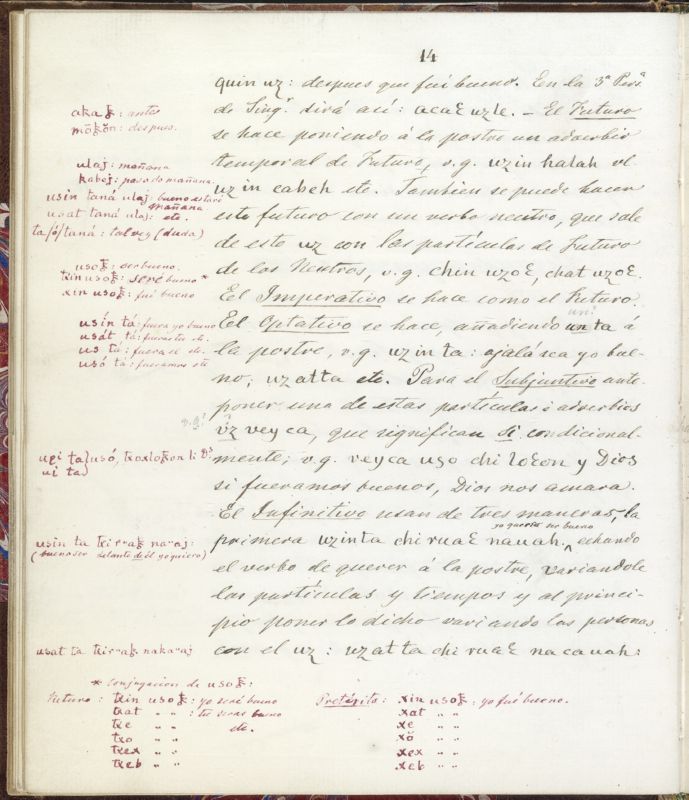 14
quin uz: despues que fuí bueno. En la 3ª Persª
de Singr. dirá ací: aca&uzle. – El Futuro
se hace poniendo á la postre un adverbio
temporal de Futuro, v.g. uz in halah vl
uz in cabeh etc. Tambien se puede hacer
este futuro con un verbo neutro, que sale
de esto uz con las partículas de Futuro
de los Neutros, v.g. chin uzo&, chat uzo&.
El Imperativo se hace como el Futuro.
El Optativo se hace, añadiendo un ta á
la postre, v.g. uz in ta: ojalá sea yo bue-
no; uz at ta etc. Para el Subjuntivo ante-
poner una de estas partículas ó adverbios
vz vey ca, que significan si condicional-
mente; v.g. veyca uso chi lo&on y Dios
si fueramos buenos, Dios nos amara.
El Infinitivo usan de tres maneras, la
yo queria ser bueno
primera uz inta chi rua& nauah. ^ echando
el verbo de querer á la postre, variandole
las partículas y tiempos y al princi-
pio poner lo dicho variando las personas
con el uz: uz at ta chi rua& nacauah:
akaꝁ: antes
mōꝁŏn: despues.
ulaj: mañana
kabej: pasado mañana.
usin taná ulaj: bueno estaré
mañana
usat taná ulaj: etc.
ta/ó/taná: talvez (duda)
usoꝁ: ser bueno.
txin usoꝁ: seré bueno *
xin usoꝁ: fuí bueno
usín tá: fuera yo bueno
usát tá: fueras tu etc.
us tá: fuera él etc.
usó tá: fueramos etc
v.g!
usin ta txirraꝁ naraj:
(bueno ser delante de él yo quiero)
usat ta txirraꝁ nakaraj
* Conjugacion de usoꝁ:
Futuro: txin usoꝁ: yo seré bueno
txat " ": tu seras bueno
txe " " etc.
txo " "
txex " "
txeb " "
Pretérito: xin usoꝁ: yo fuí bueno.
xat " "
xe " "
xŏ " "
xex " "
xeb " "